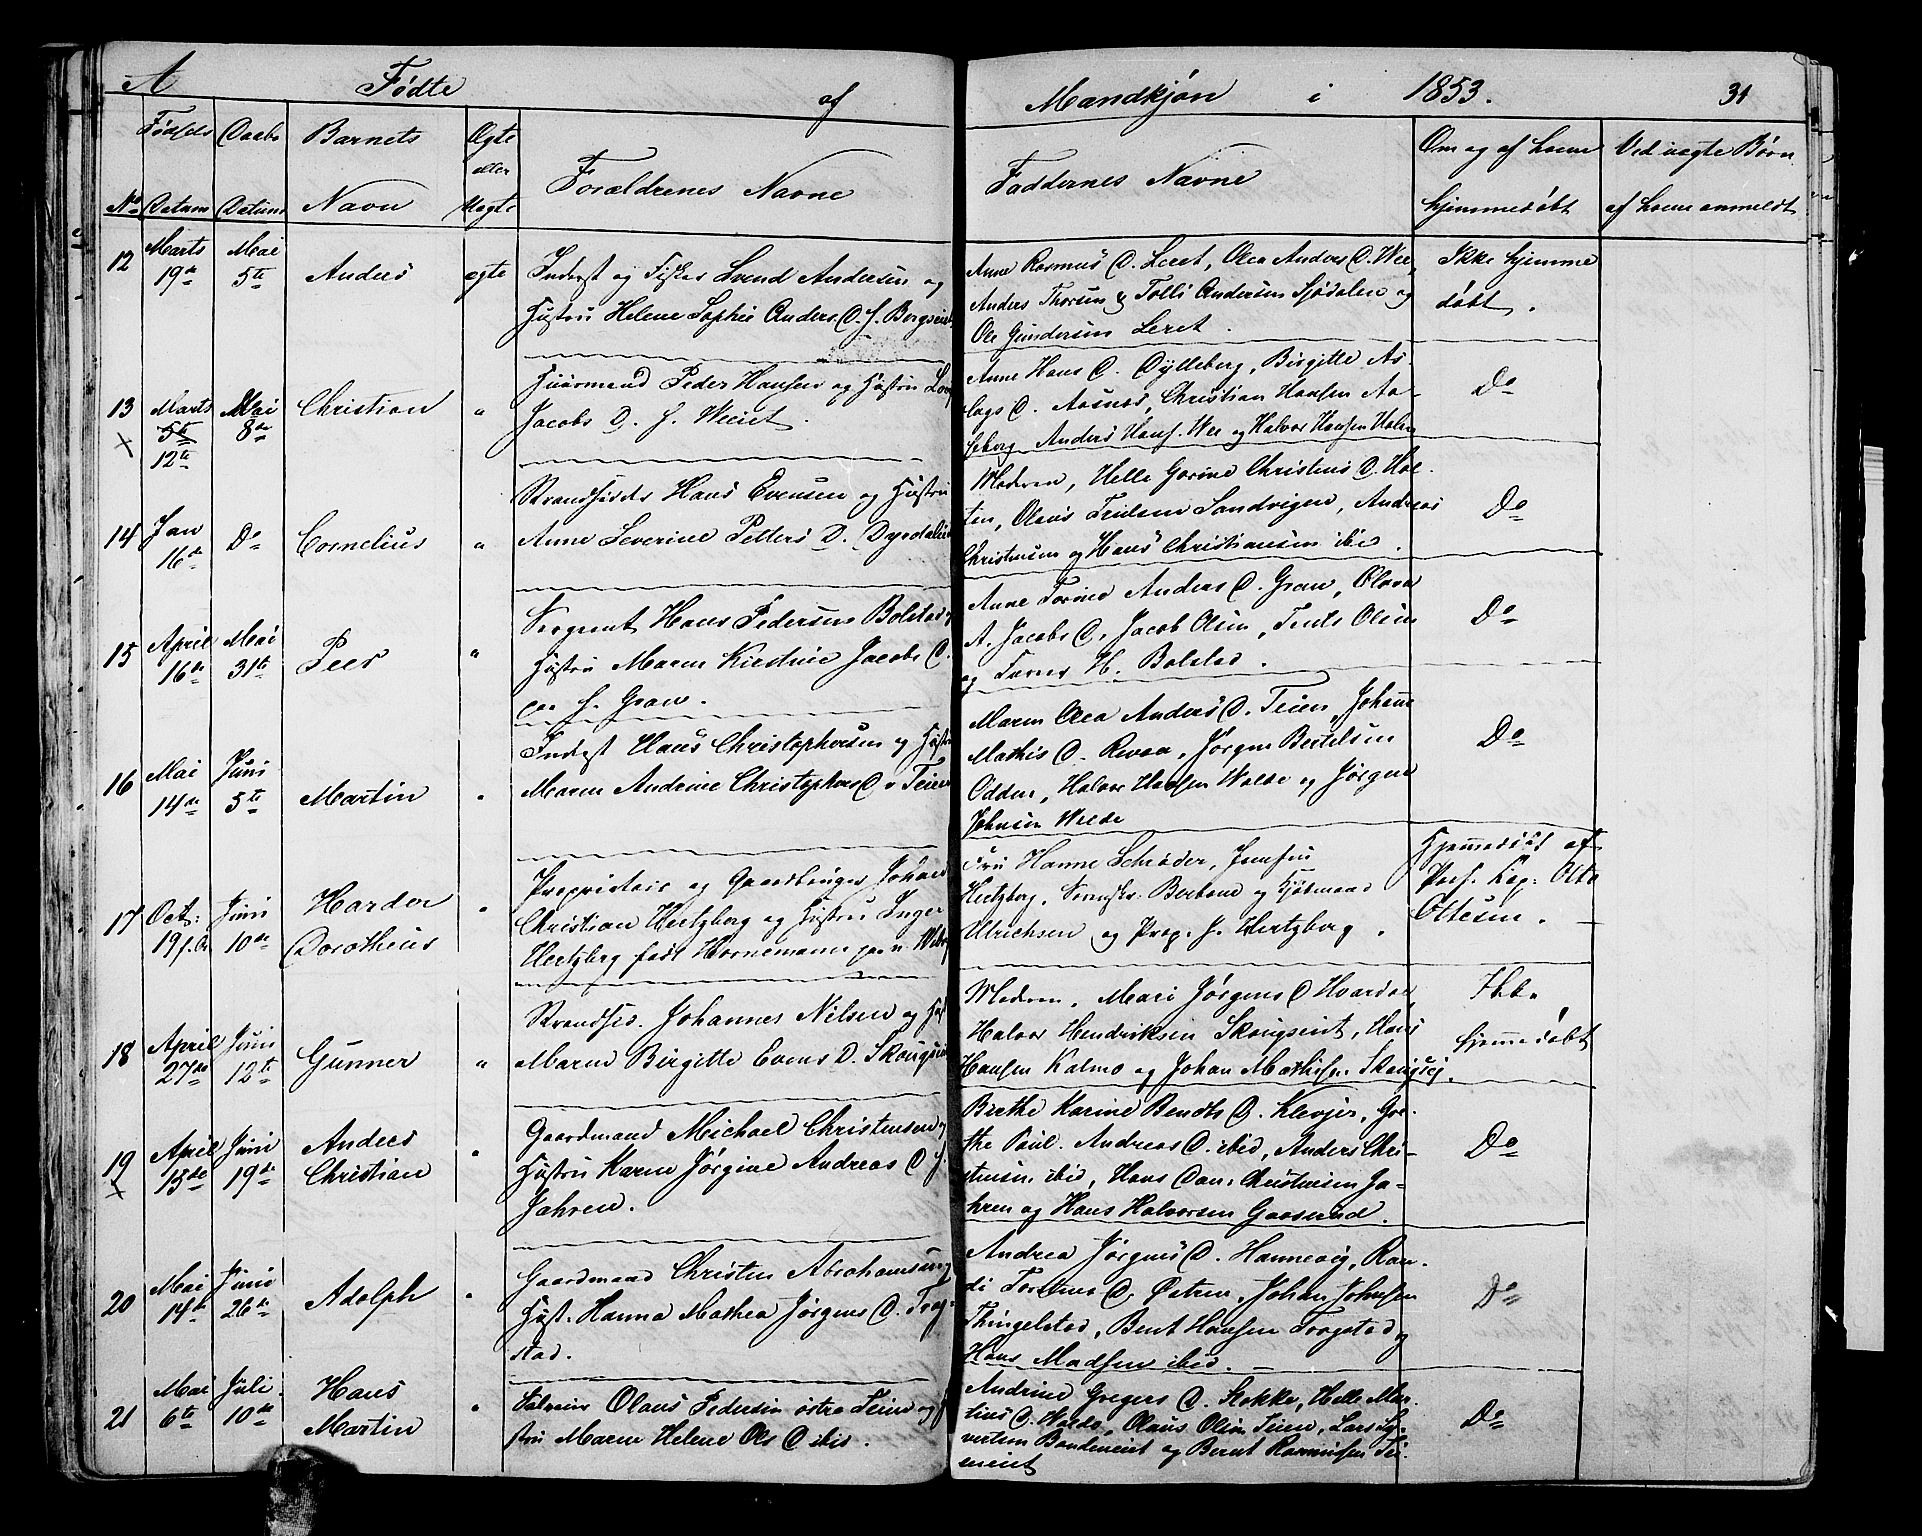 A Fødte af Mandkjøn i 1853. 31
Fødsels Daabs Barnets Ægte
eller Forældrenes Navne Faddernes Navne Om og af hvem Ved uægte Børn
No Datum Datum Navn Uægte hjemmedøbt af hvem anmeldt
12 Marts 19de Mai 5te Anders ægte
Inderst og Fisker Svend Andersen og
Hustru Helene Sophie Anders D. f. Bergseiet
Anne Rasmus D. Leret, Olea Anders D. Wee,
Anders Thorsen & Tolli Andersen Sjødalen og
Ole Gundersen Leret.
Ikke hjemme
døbt.
13 Marts 5te 12te Mai 8de Christian "
Huusmand Peder Hansen og Hustru
Jacobs D. f. Weeiet.
Anne Hans D. Dylleberg, Birgitte As
lags D. Aasnes, Christian Hansen Aa-
seberg Anders Hans. Wee og Halvor Hansen Holm
Do
14 Jan 16de Do Cornelius "
Strandsidder Hans Evensen og Hustru
Anne Severine Petters D. Dyrdalen
Moderen, Helle Gorine Christens D. Hol-
ten, Olaus Trulsen Sandvigen, Andreas
Christensen og Hans Christiansen ibid.
Do
15 April 16de Mai 31te Peer "
Sergeant Hans Pedersen Bolstad og
Hustru Maren Kirstine Jacobs D.
paa f. Gran.
Anne Torine Anders D. Gran, Olava
A. Jacobs D. Jacob Olsen, Truls Olsen
og Tarer H. Bolstad.
Do
16 Mai 14de Juni 5te Martin "
Inderst Claus Christophersen og Hustru
Maren Andrine Christophers D v Teien
Maren Olea Anders D. Teien, Johanne
Mathis D. Revaa, Jørgen Bertelsen
Odden, Halvor Hansen Wolde og Jørgen
Johnsen Wolde
Do
17 Oct: 19 f. A. Juni 10de Harder
Dorotheus "
Proprietair og Gaardbruger Johan
Christian Hertzberg og Hustru Inger
Hertzberg født Hornemann paa
Fru Hanne Schrøder, Jomfru
Hertzberg, Svendsr. Berbom og Kjøbmand
Ulrichsen og Prop. J. Hertzberg.
Hjemmedøbt af
Pers. Kap: Otto
Ottesen.
18 April 27de Juni 12te Gunner "
Strandsid. Johannes Nilsen og Hust
Maren Birgitte Evens D. Skougseiet
Moderen, Mari Jørgens D Hvardal
Halvor Hendriksen Skougseiet, Hans
Hansen Kalmo og Johan Mathisen Skougsej.
Ikke
hjemmedøbt
19 April 15de Juni 19de Anders
Christian "
Gaardmand Michael Christensen og
Hustru Karen Jørgine Andreas D f.
Jahren.
Birthe Karine Bendts D. Klevjer, Gre-
the Paul. Andreas D. ibid, Anders Chri-
stensen ibid, Hans Dan. Christensen Ja-
hren og Hans Halvorsen Gaaserud.
Do
20 Mai 14de Juni 26de Adolph "
Gaardmand Christen Abrahamsen og
Hust. Hanna Mathea Jørgens D. Trog-
stad.
Andrea Jørgens D. Hannevig, Ran-
di Torstens D. Østren, Johan Johnsen
Thingelstad, Bent Hansen Trogstad og
Hans Madsen ibid.
Do
21 Mai 6te Juli 10de Hans
Martin "
Olaus Pedersen østre Teien og Hu
stru Maren Helene Ols D ibid.
Andrine Gregers D. Stokke, Helle Mar-
tins D. Wolde, Olaus Olsen Teien, Lars Sy-
vertsen Bondeneiet og Bernt Rasmussen Tei-
eneiet
Do